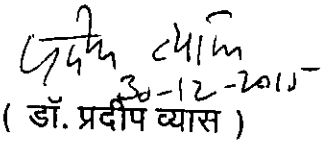 प्रदीप व्यास
30-12-2015
( डॉ. प्रदीप व्यास )